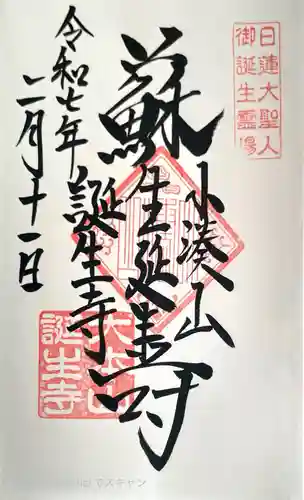 日蓮大聖人
御誕生霊場
小湊山
蘇生延寿
誕生寺
令和七年
二月十一日
大本山
誕生寺
でスキャン